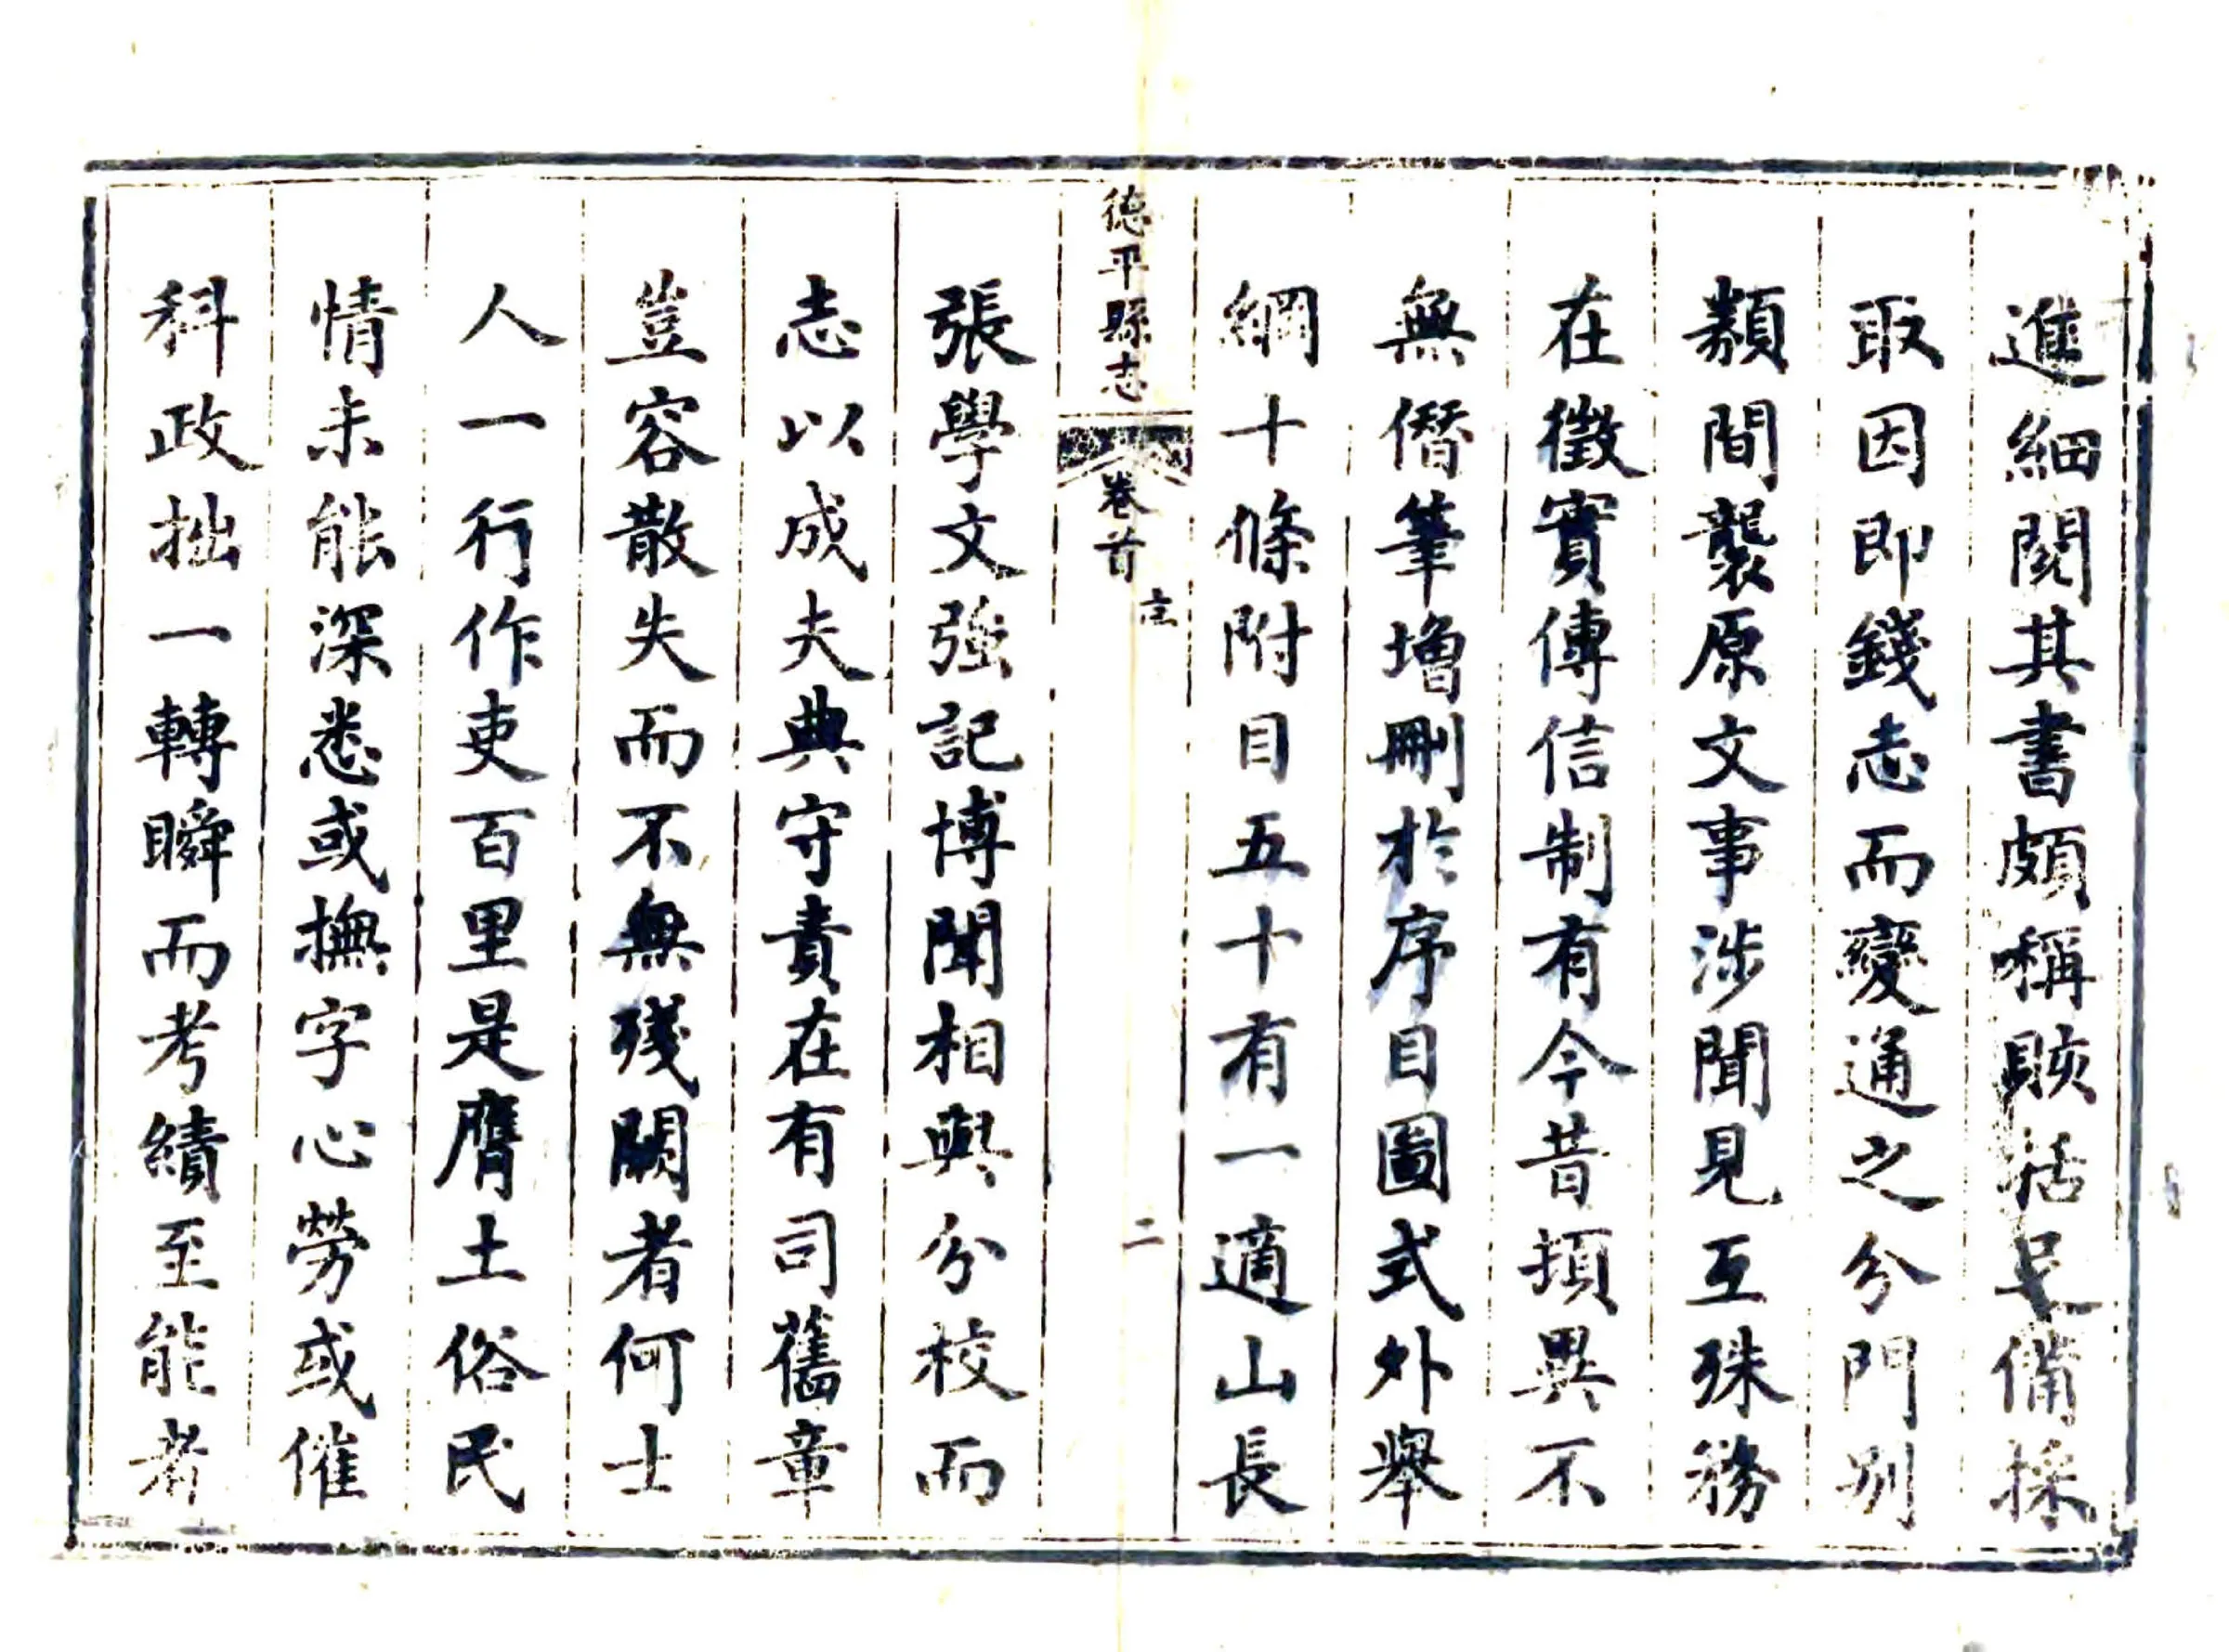 進細閱其書頗稱賅括足備採
取因即錢志而變通之分門別
類間襲原文事涉聞見互殊務
在徵實傳信制有今昔頓異不
無僭筆增刪於序目圖式外舉
綱十條附目五十有一適山長
德平縣志
卷首
二
張學文強記博聞相與分校而
志以成夫典守責在有司舊章
豈容散失而不無殘闕者何士
人一行作吏百里是膺土俗民
情未能深悉或撫字心勞或催
科政拙一轉瞬而考績至能者